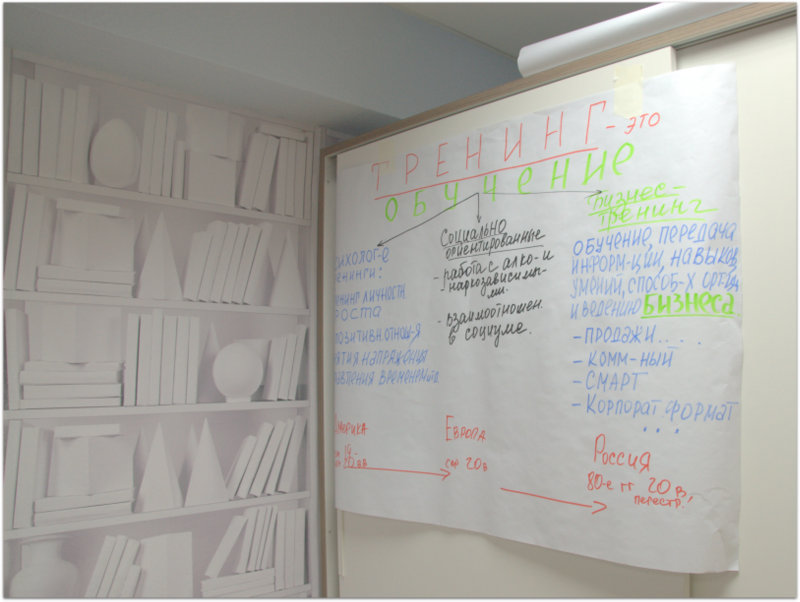 ТРЕНИНГ - ЭТО
ОБУЧЕНИЕ
ихолог-е
енинги:
енинг личности
роста
позитивн отнош-я
ятия напряж
авления временем
Социально
ориентированные
- работа с алко- и
наркозависимы-
ми.
- взаимоотношен.
в социуме.
Бизнес-
тренинг
Обучение, передача
информ-ции, навыков,
умений, способ-х орг-ции
и ведению Бизнеса
- продажи....
- комм-ный
- СМАРТ
- Корпорат. формат
...
Америка
Европа
сер 20в
Россия
80-е гг 20 в,
перестр.